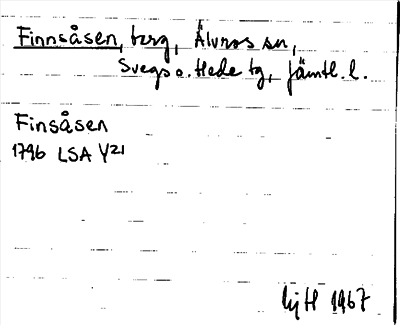 Finnsåsen, berg, Älvros sn,
Svegs o. Hede tg, Jämtl. l.
Finsåsen
1796 LSA Y21
1967